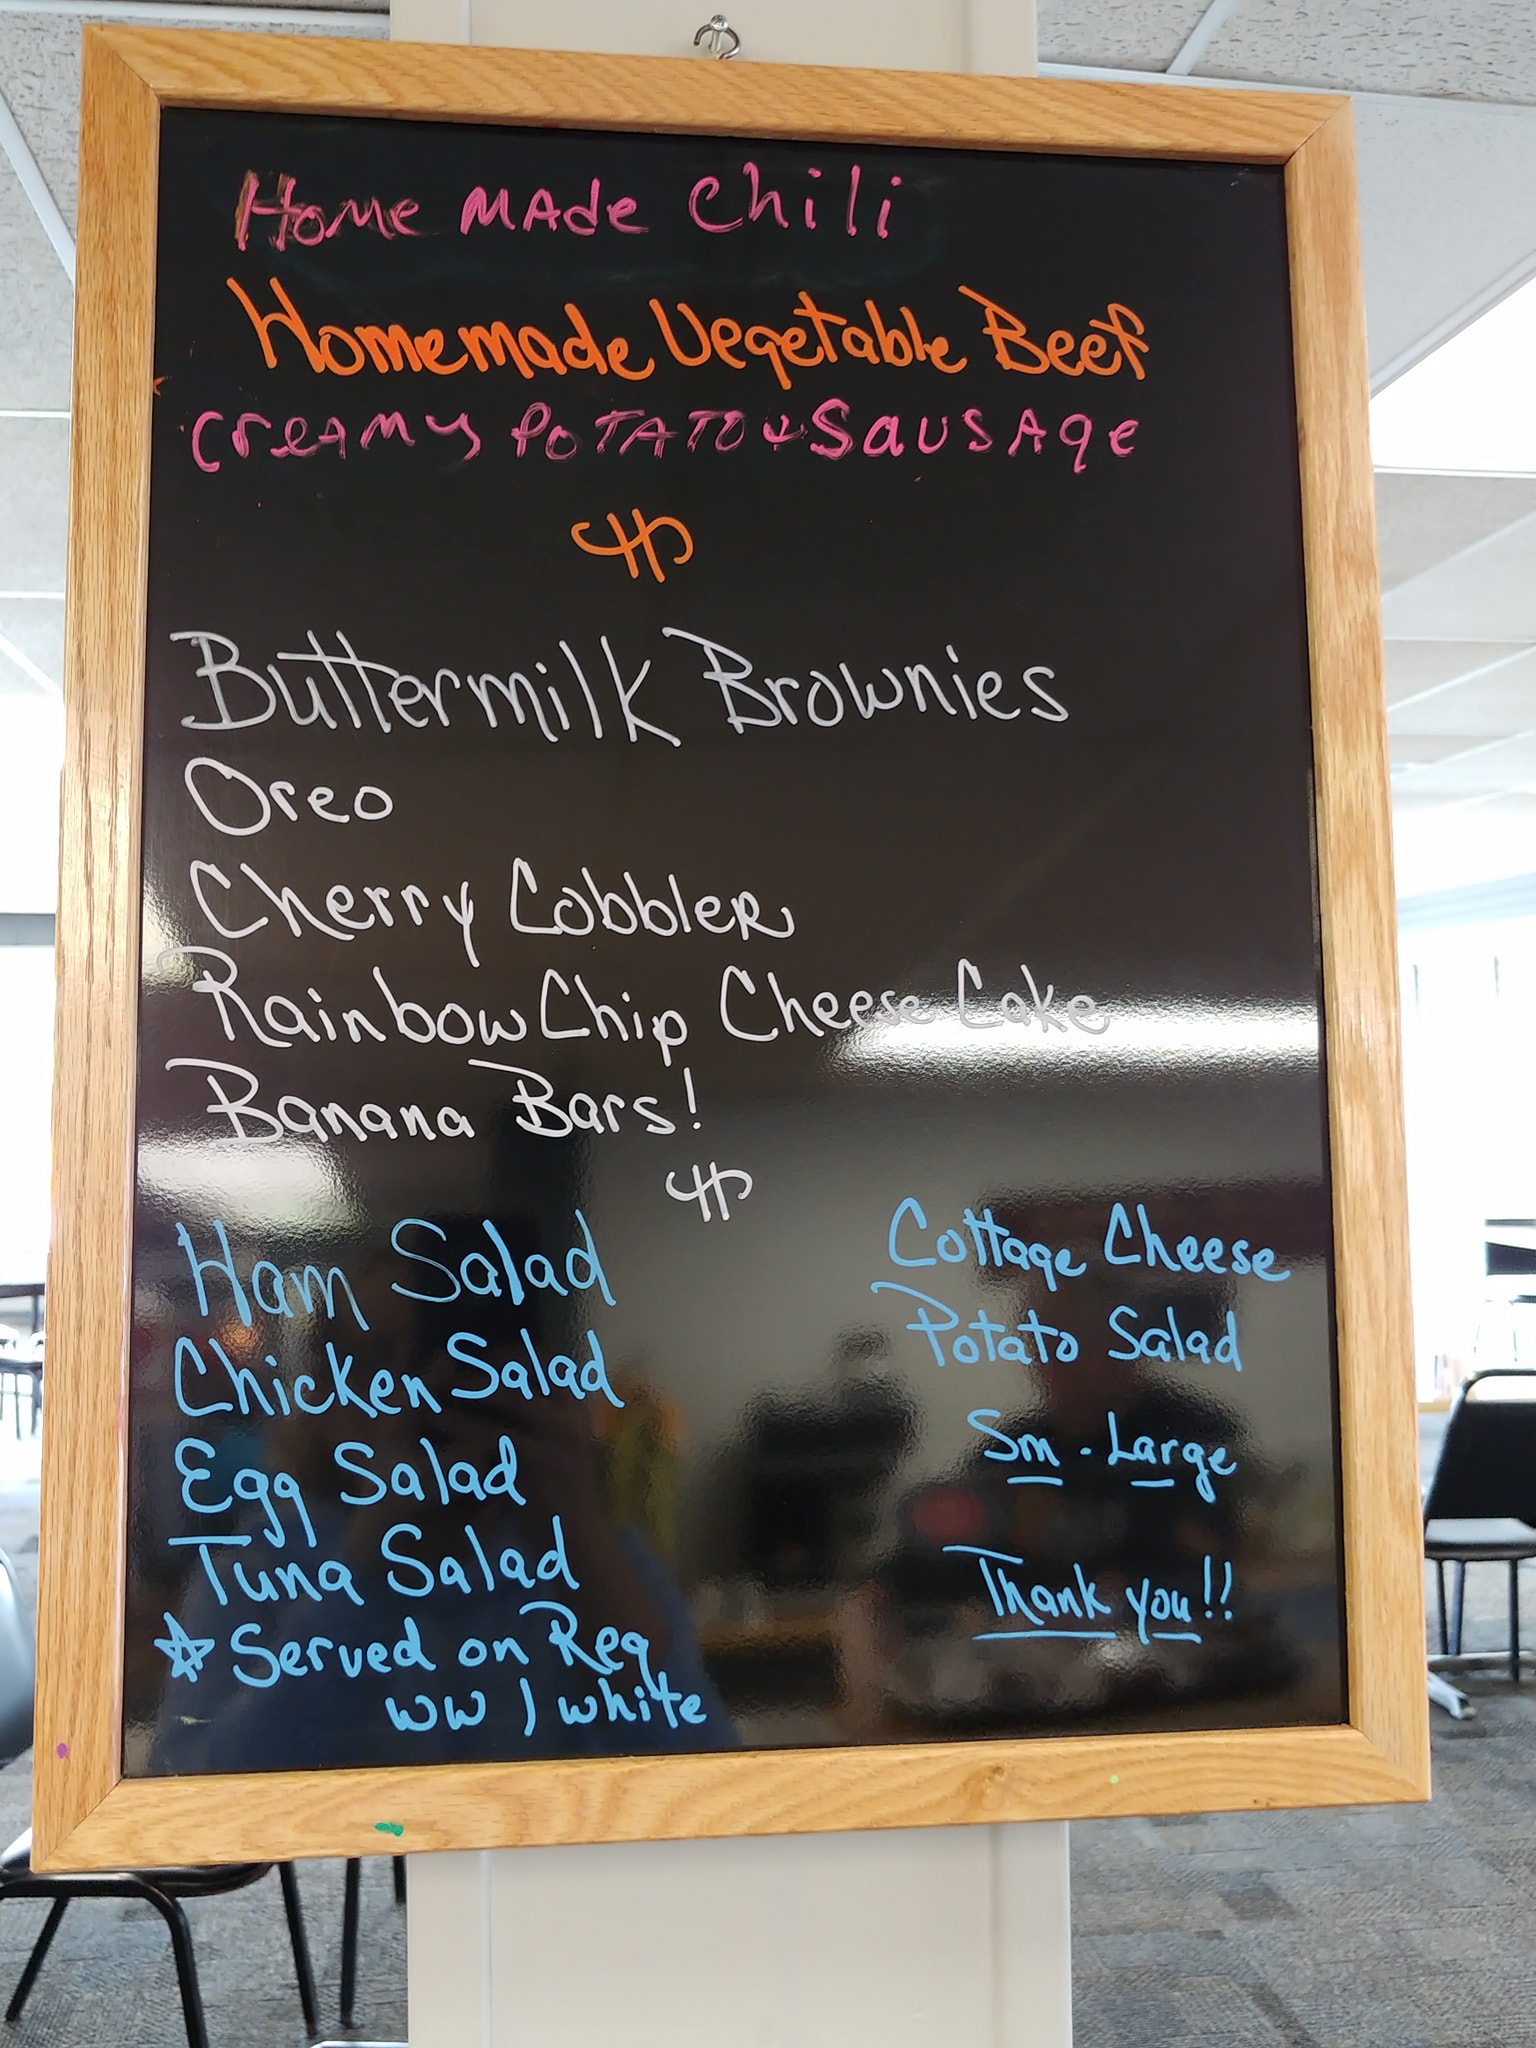 Home MAde Chili
Homemade Vegetable Beef
CreAmy PoTATO & SausAge
Buttermilk Brownies
Oreo
Cherry Cobbler
Rainbow Chip Cheese Cake
Banana Bars!
Ham Salad
Chicken Salad
Egg Salad
Tuna Salad
☆ Served on Reg
WW / white
Cottage Cheese
Potato Salad
Sm - Large
Thank you!!